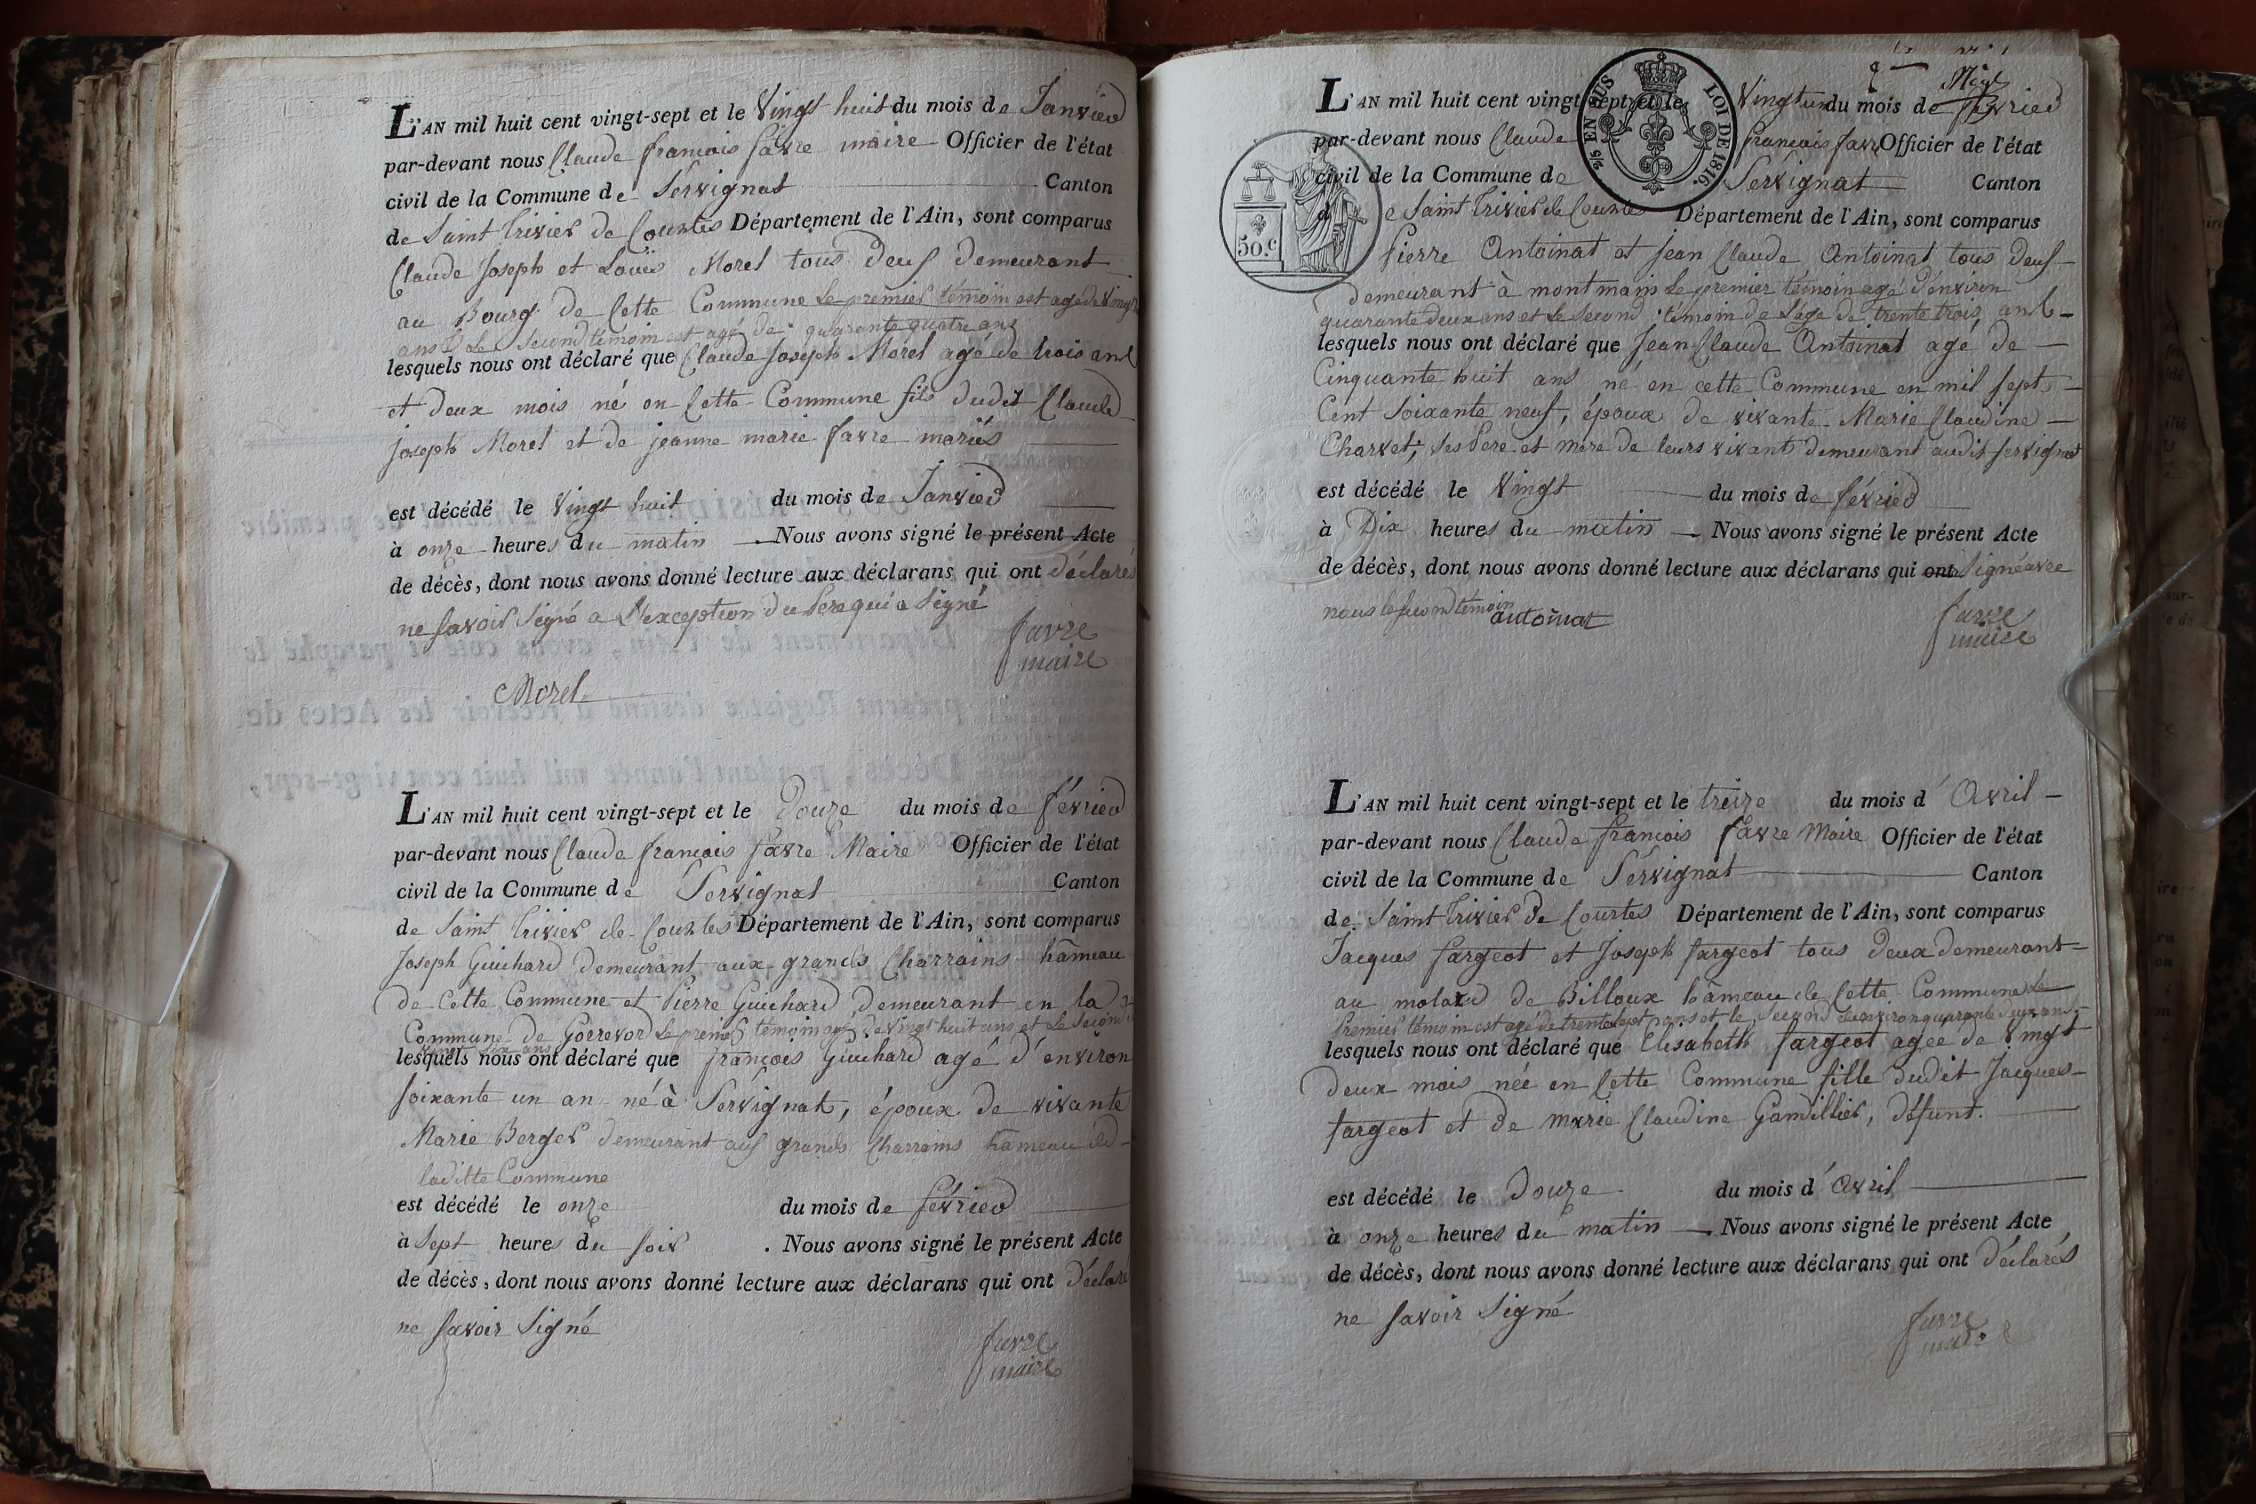 L'AN mil huit cent vingt-sept et le Vingt huit du mois de Janvier
par-devant nous Claude francois favre maire Officier de l'état
civil de la Commune de Servignat Canton
de Saint Trivier de Courtes Département de l'Ain, sont comparus
Claude Joseph et Louis Morel tous deux demeurant
au Bourg de Cette Commune Le premier témoin est agé de Vingt
ans Le Second témoin est agé de quarante quatre ans
lesquels nous ont déclaré que Claude Joseph Morel agé de trois ans
et deux mois né en Cette Commune fils dudit Claude
Joseph Morel et de jeanne marie favre mariés
est décédé le Vingt huit du mois de Janvier
à onze heures du matin Nous avons signé le présent Acte
de décès, dont nous avons donné lecture aux déclarans qui ont déclarés
ne savoir Signé a L'exception du Pere qui a Signé
favre
maire
Morel
L'AN mil huit cent vingt-sept et le Douze du mois de février
par-devant nous Claude francois favre Maire Officier de l'état
civil de la Commune de Servignat Canton
de Saint Trivier de Courtes Département de l'Ain, sont comparus
Joseph Guichard demeurant aux grands Charrains hameau
de Cette Commune et Pierre Guichard demeurant en la
Commune de Gorrevod Le premier témoin agé de vingt huit ans et Le Second
six ans
lesquels nous ont déclaré que françois Guichard agé d'environ
soixante un an né à Servignat, époux de vivante
Marie Berger demeurant aux grands Charrains hameau de
laditte Commune
est décédé le onze du mois de février
à Sept heures du soir . Nous avons signé le présent Acte
de décès, dont nous avons donné lecture aux déclarans qui ont déclaré
ne savoir Signé
favre
maire
L'AN mil huit cent vingt-sept et le Vingt un du mois de février
par-devant nous Claude françois favre Officier de l'état
civil de la Commune de Servignat Canton
de Saint Trivier de Courtes Département de l'Ain, sont comparus
2/5 EN SUS LOI DE 1816.
50.c
Pierre Antoinat et Jean Claude Antoinat tous deux
demeurant à montmain Le premier témoin agé d'environ
quarante deux ans et Le Second témoin de L'age de trente trois ans
lesquels nous ont déclaré que Jean Claude Antoinat agé de
Cinquante huit ans né en cette Commune en mil sept
Cent Soixante neuf, époux de vivante Marie Claudine
Charvet, Ses Pere et mere de leurs vivants demeurant audit Servignat
est décédé le Vingt du mois de février
à Dix heures du matin Nous avons signé le présent Acte
de décès, dont nous avons donné lecture aux déclarans qui ont Signé avec
nous le second témoin
antoinat
favre
maire
L'AN mil huit cent vingt-sept et le treize du mois d'Avril
par-devant nous Claude françois favre Maire Officier de l'état
civil de la Commune de Servignat Canton
de Saint Trivier de Courtes Département de l'Ain, sont comparus
Jacques fargeot et Joseph fargeot tous deux demeurant
au molard de Billoux hâmeau de Cette Commune Le
Premier témoin est agé de trente sept ans et le Second d'environ quarante
lesquels nous ont déclaré que Elisabeth fargeot agée de Vingt
deux mois née en Cette Commune fille dudit Jacques
fargeot et de marie Claudine Gandillier, défunt.
est décédé le Douze du mois d'Avril
à onze heures du matin Nous avons signé le présent Acte
de décès, dont nous avons donné lecture aux déclarans qui ont déclarés
ne savoir Signé
favre
maire